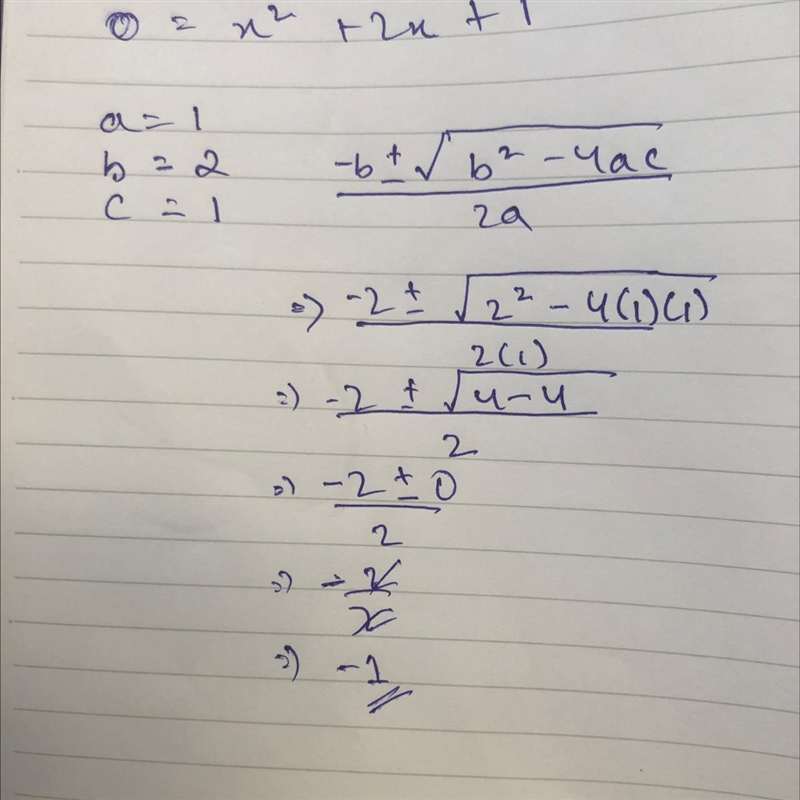 0 = x² + 2x + 1
a = 1
b = 2
c = 1
-b ± √(b² - 4ac) / 2a
=) -2 ± √(2² - 4(1)(1)) / 2(1)
=) -2 ± √(4 - 4) / 2
=) -2 ± 0 / 2
=) -2 / 2
=) -1